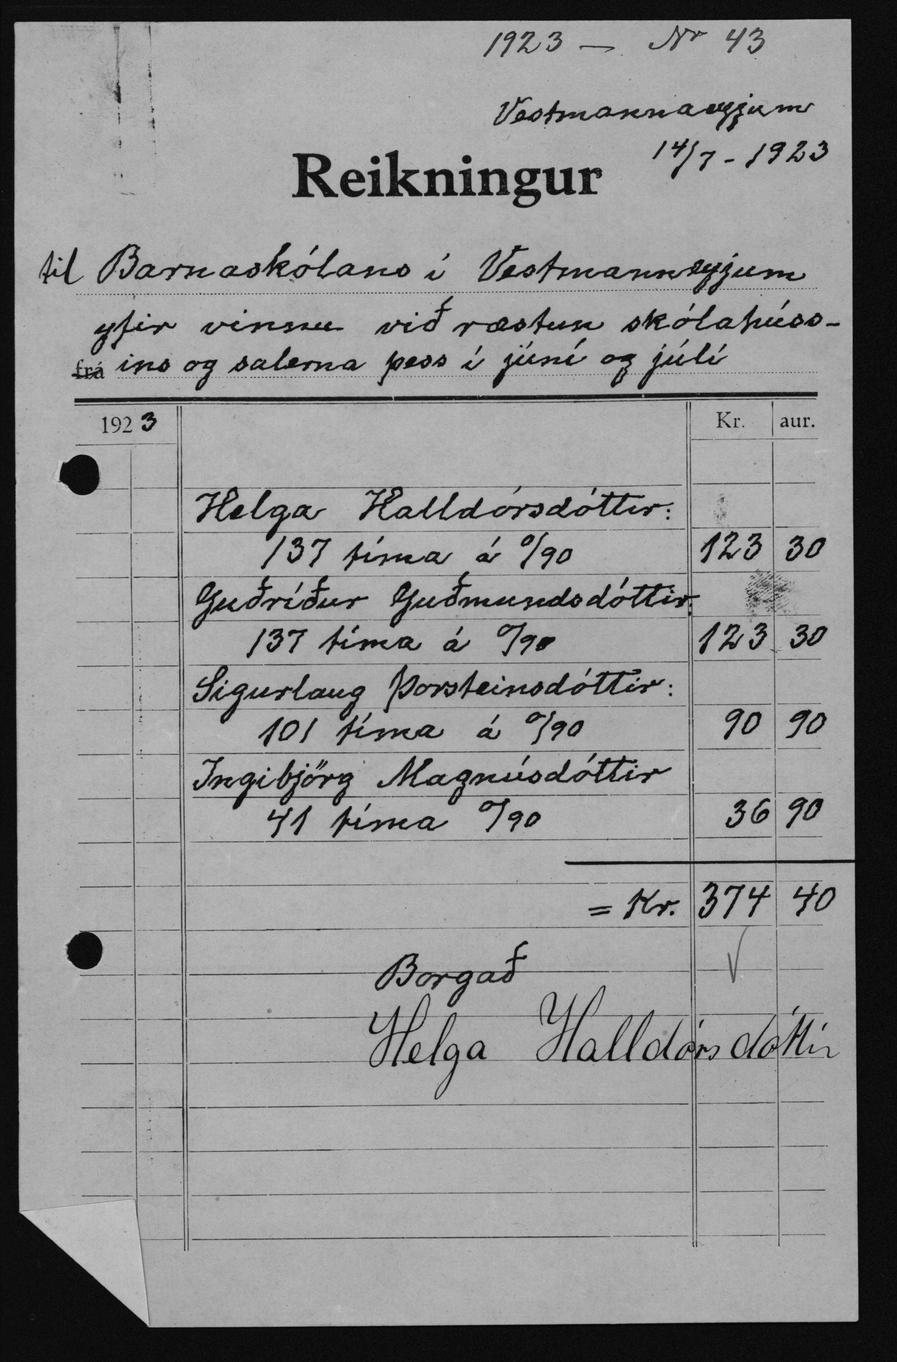 1923 — Nr 43
Vestmannaeyjum
14/7 - 1923
Reikningur
til Barnaskólans í Vestmanneyjum
yfir vinnu við ræstun skólahúss-
frá ins og salerna þess í júní og júlí
1923 Kr. aur.
Helga Halldórsdóttir:
137 tíma á 0/90 123 30
Guðríður Guðmundsdóttir:
137 tíma á 0/90 123 30
Sigurlaug Þorsteinsdóttir:
101 tíma á 0/90 90 90
Ingibjörg Magnúsdóttir
41 tíma 0/90 36 90
= Kr. 374 40
Borgað
Helga Halldórsdóttir